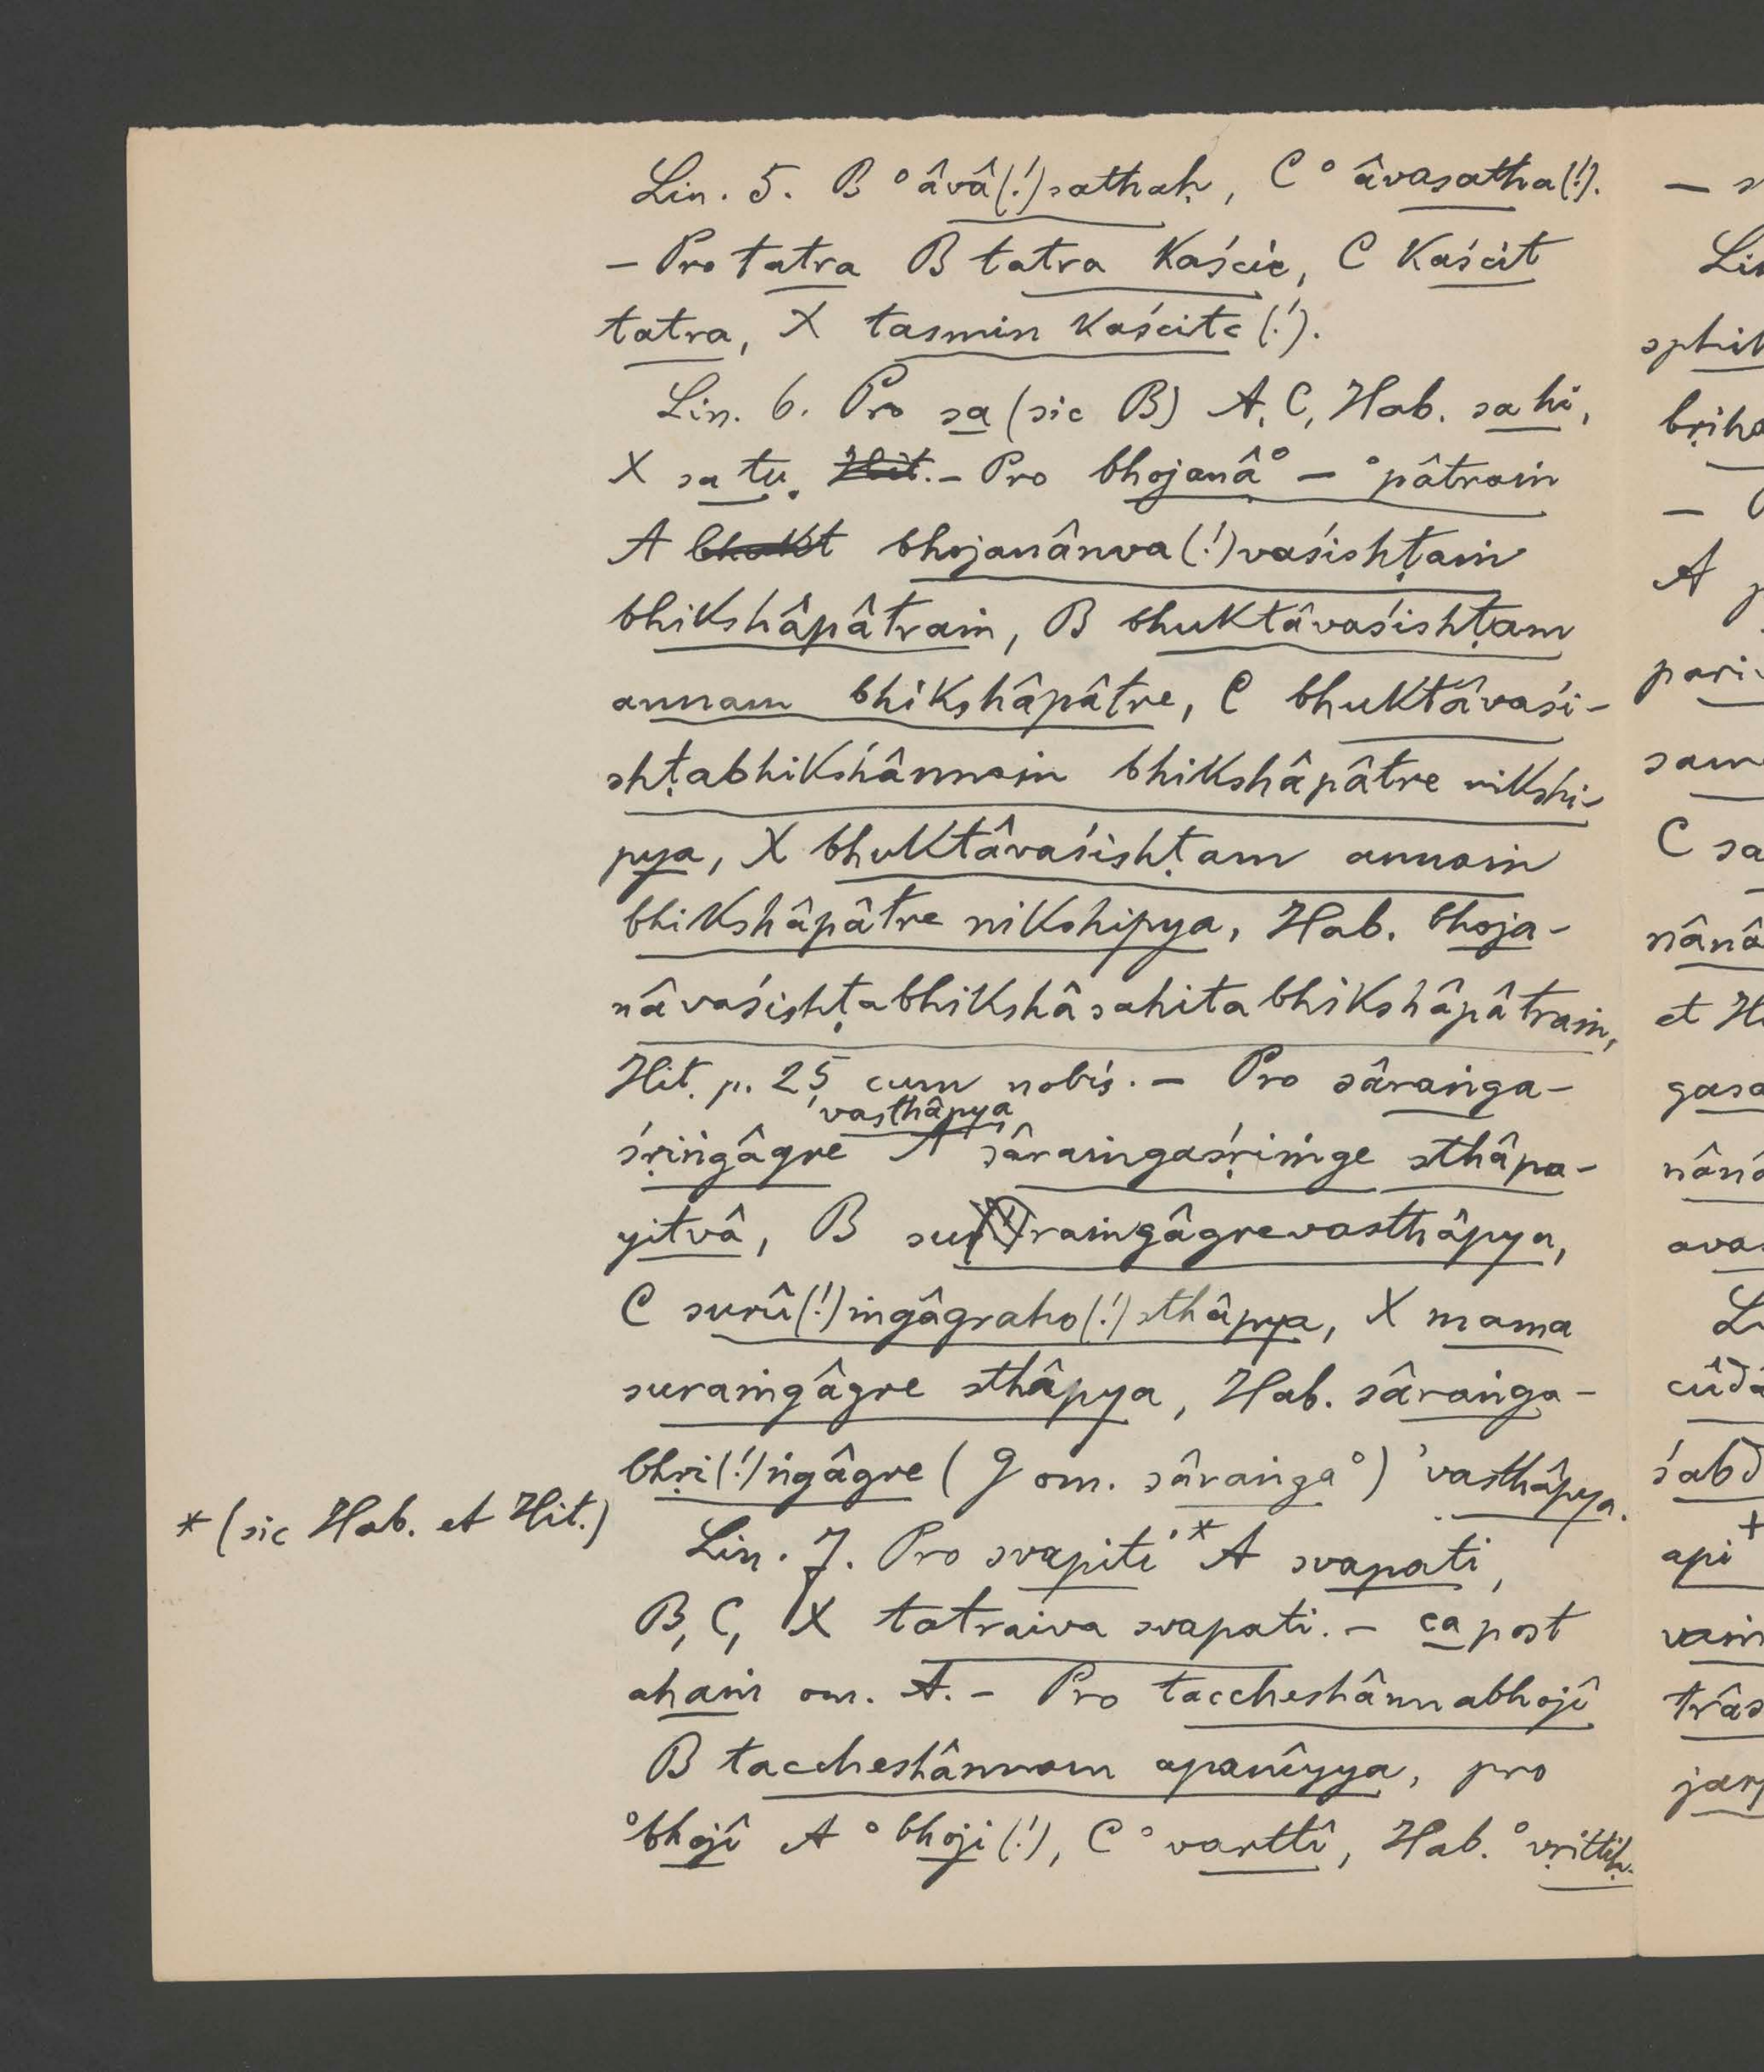 Lin. 5. B °âvâ(!)sathaḥ, C °âvasatha(!).
– Pro tatra B tatra kaścic, C kaścit
tatra, X tasmin kaścitc(!).
Lin. 6. Pro sa (sic B) A, C, Hab. sa hi,
X sa tu. Hit. – Pro bhojanâ° – °pâtraṁ
A bhukt bhojanânva(!)vaśishṭaṁ
bhikshâpâtraṁ, B bhuktâvaśishṭam
annam bhikshâpâtre, C bhuktâvaśi-
shṭabhikshânnaṁ bhikshâpâtre nikshi-
pya, X bhuktâvaśishṭam annaṁ
bhikshâpâtre nikshipya, Hab. bhoja-
nâvaśishṭabhikshâsahitabhikshâpâtraṁ,
Hit. p. 25 cum nobis. – Pro sâraṅga-
'vasthâpya
śṛiṅgâgre A sâraṁgaśṛiṁge sthâpa-
yitvâ, B suraṁgâgrevasthâpya,
C surû(!)ṁgâgraho(!)sthâpya, X mama
suraṁgâgre sthâpya, Hab. sâraṅga-
bhṛi(!)ṅgâgre (g om. sâraṅga°) 'vasthâpya.
* (sic Hab. et Hit.)
Lin. 7. Pro svapiti* A svapati,
B, C, X tatraiva svapati. – ca post
ahaṁ om. A. – Pro taccheshânnabhojî
B taccheshânnam apanîyya, pro
°bhojî A °bhoji(!), C °varttî, Hab. °vṛittiḥ.
– s
Lin
sphiṭ
bṛiha
–
A p
pari
sam
C sa
nânâ
et Hi
gasa
nânâ
avas
L
cûḍâ
śabd
+
api
vaṁ
trâs
jarj